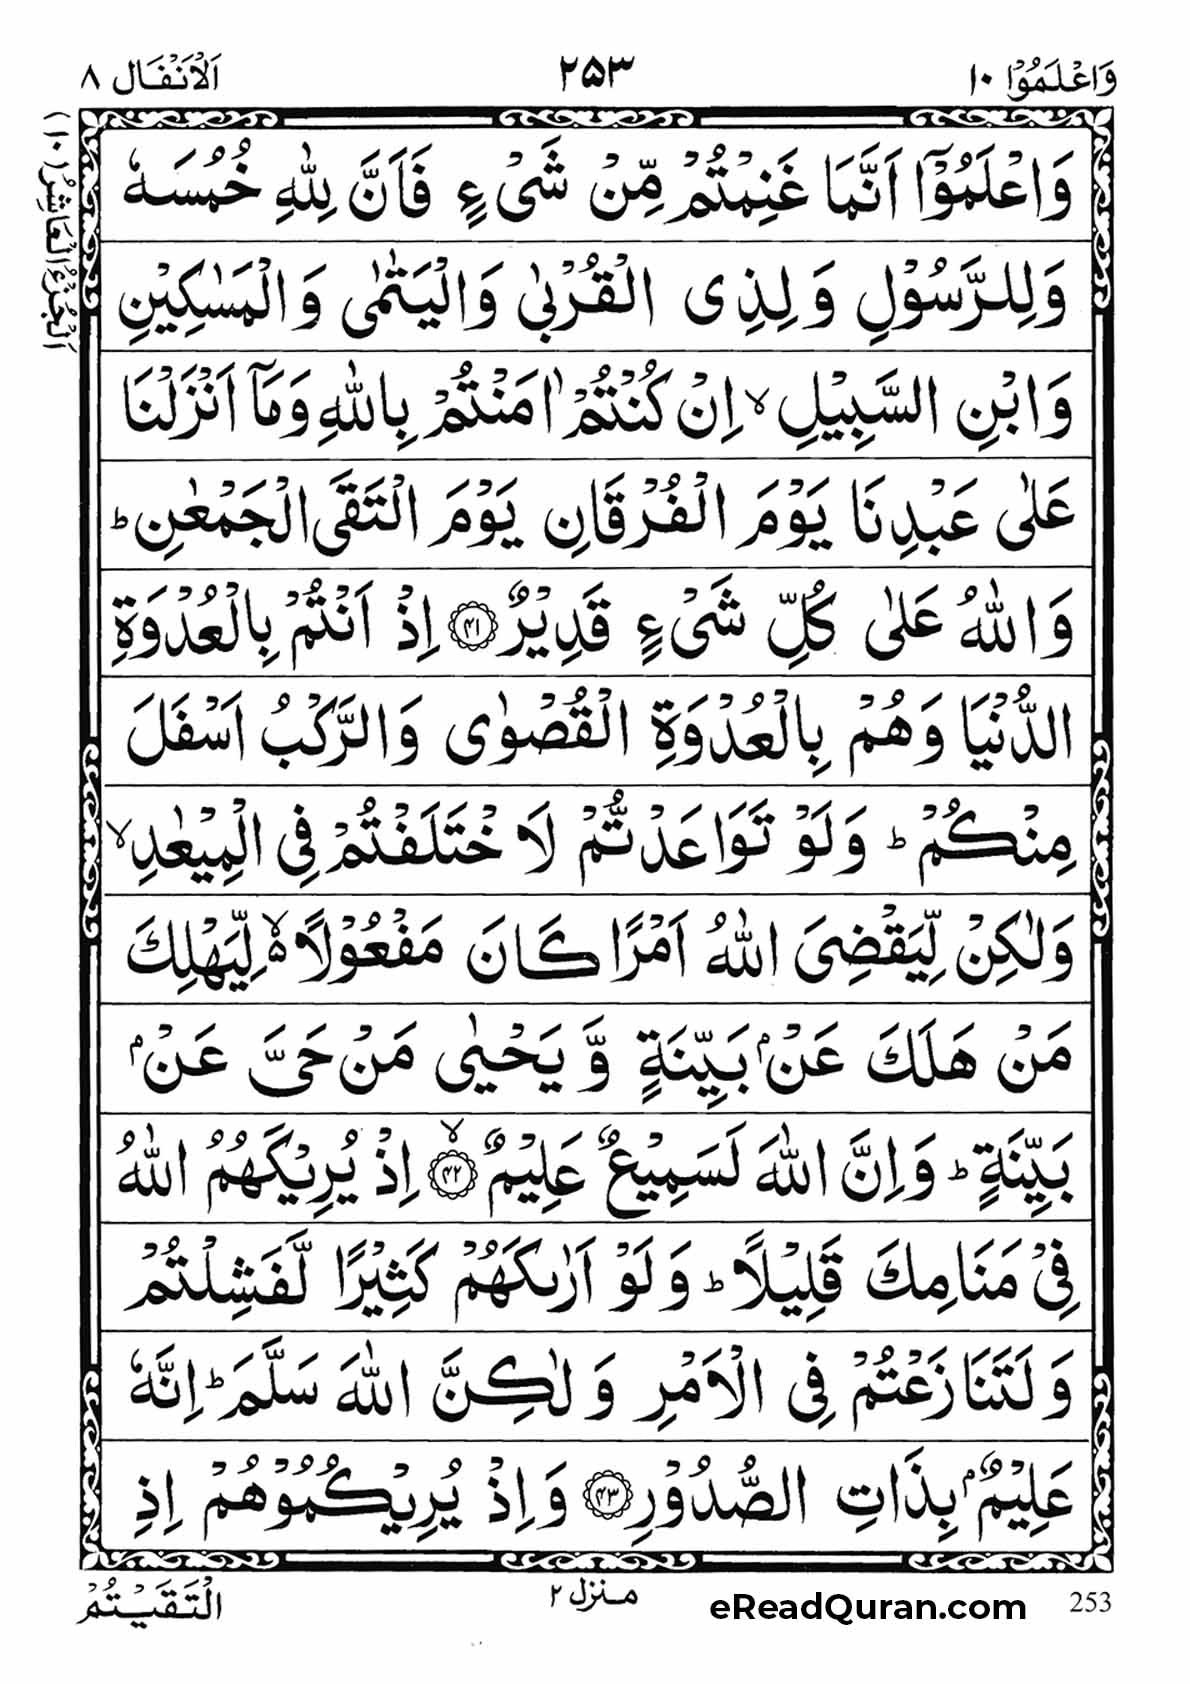 وَاعْلَمُوْا ١٠
٢٥٣
اَلْاَنْفَال ٨
اَلْجُزْءُ الْعَاشِرُ (١٠)
وَاعْلَمُوْٓا اَنَّمَا غَنِمْتُمْ مِّنْ شَیْءٍ فَاَنَّ لِلّٰهِ خُمُسَهٗ
وَلِلرَّسُوْلِ وَلِذِی الْقُرْبٰی وَالْیَتٰمٰی وَالْمَسٰكِیْنِ
وَابْنِ السَّبِیْلِ ۙ اِنْ كُنْتُمْ اٰمَنْتُمْ بِاللّٰهِ وَمَاۤ اَنْزَلْنَا
عَلٰی عَبْدِنَا یَوْمَ الْفُرْقَانِ یَوْمَ الْتَقَی الْجَمْعٰنِ ؕ
وَاللّٰهُ عَلٰی كُلِّ شَیْءٍ قَدِیْرٌ ﴿۴۱﴾ اِذْ اَنْتُمْ بِالْعُدْوَةِ
الدُّنْیَا وَهُمْ بِالْعُدْوَةِ الْقُصْوٰی وَالرَّكْبُ اَسْفَلَ
مِنْكُمْ ؕ وَلَوْ تَوَاعَدْتُّمْ لَاخْتَلَفْتُمْ فِی الْمِیْعٰدِ ۙ
وَلٰكِنْ لِّیَقْضِیَ اللّٰهُ اَمْرًا كَانَ مَفْعُوْلًا ۬ۙ لِّیَهْلِكَ
مَنْ هَلَكَ عَنْۢ بَیِّنَةٍ وَّیَحْیٰی مَنْ حَیَّ عَنْۢ
بَیِّنَةٍ ؕ وَاِنَّ اللّٰهَ لَسَمِیْعٌ عَلِیْمٌ ﴿۴۲﴾ۙ اِذْ یُرِیْكَهُمُ اللّٰهُ
فِیْ مَنَامِكَ قَلِیْلًا ؕ وَلَوْ اَرٰىكَهُمْ كَثِیْرًا لَّفَشِلْتُمْ
وَلَتَنَازَعْتُمْ فِی الْاَمْرِ وَلٰكِنَّ اللّٰهَ سَلَّمَ ؕ اِنَّهٗ
عَلِیْمٌۢ بِذَاتِ الصُّدُوْرِ ﴿۴۳﴾ وَاِذْ یُرِیْكُمُوْهُمْ اِذِ
الْتَقَیْتُمْ
منزل ٢
eReadQuran.com
253